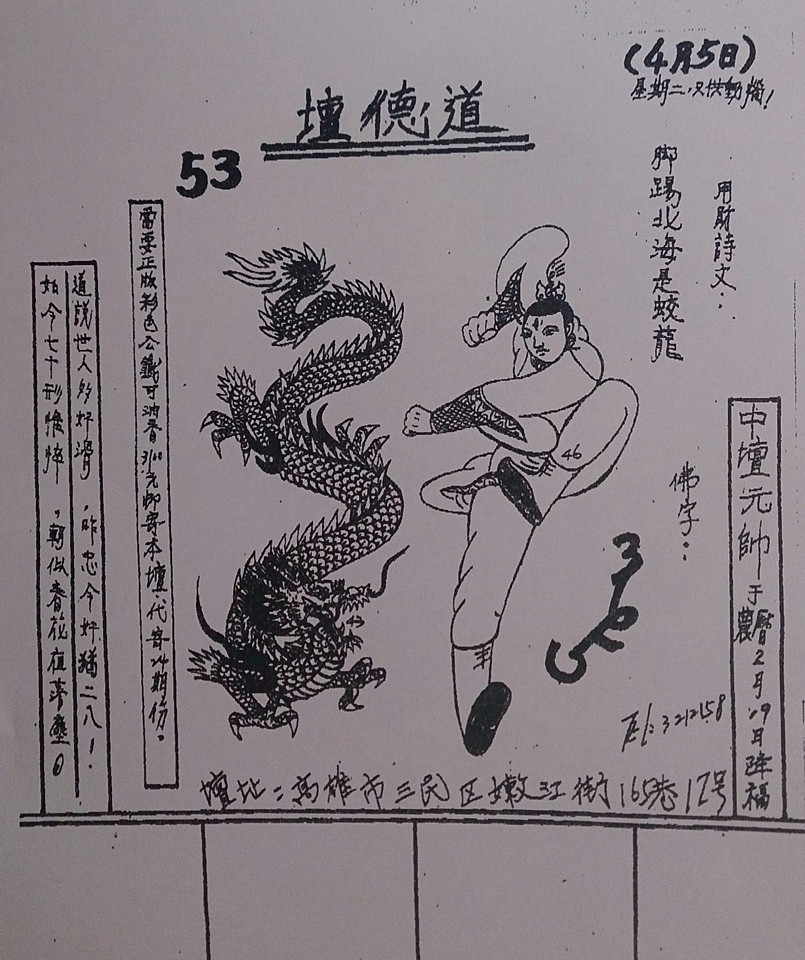 (4月5日)
星期二.只供動惱!
道德壇
53
用財詩文:
脚踢北海是蛟龍
佛字:
中壇元帥于農曆2月19日降福
需要正版彩色公籤可洽香 元即寄本壇.代寄24期份。
道説世人多奸滑,昨忠今奸猶二八!
如今七十形憔悴,朝似春花夜夢
46
3
6
5
Tel:3212158
壇址:高雄市三民区嫩江街165巷17号